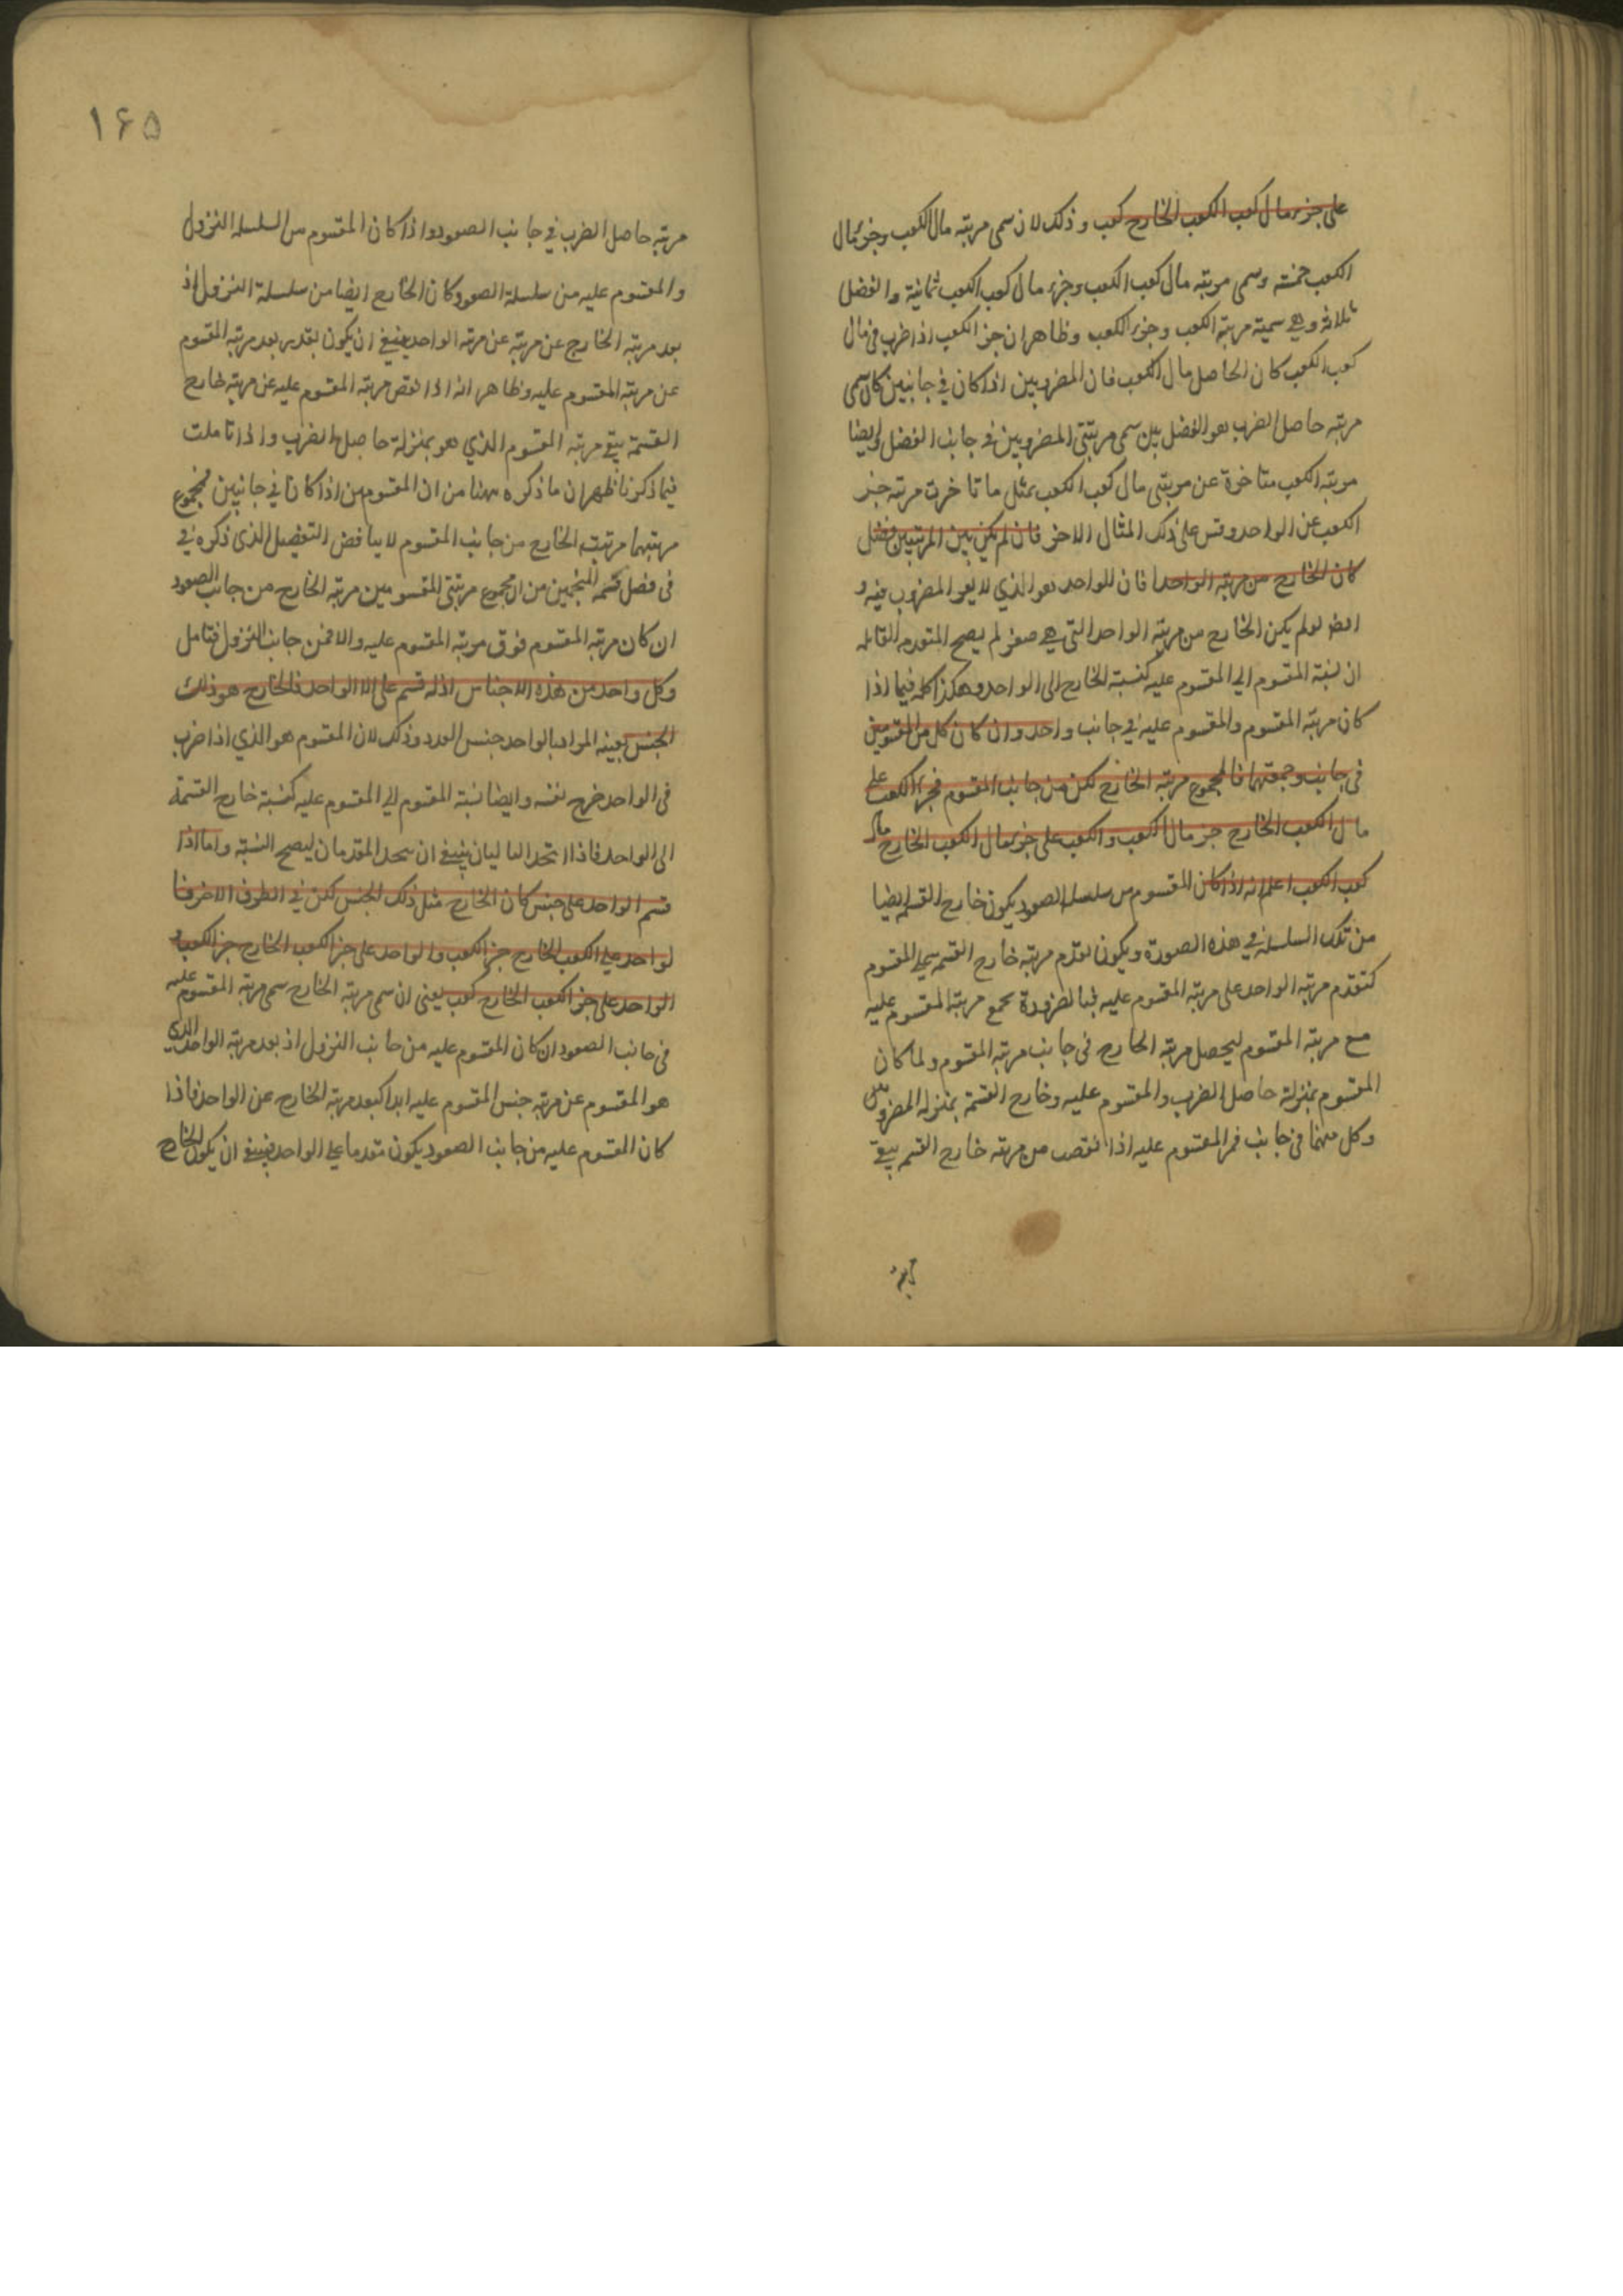 على جزء مال كعب الكعب الخارج كعب وذلك لان سمى مرتبه مال الكعب وجزء مال
الكعب خمسة وسمى مرتبه مال كعب الكعب وجزء مال كعب الكعب ثمانية والفضل
ثلاثة وهي سمية مرتبة الكعب وجزء الكعب وظاهر ان جزء الكعب اذا ضرب في مال
كعب الكعب كان الحاصل مال الكعب فان المضروبين اذا كان في جانبين كان سمى
مرتبه حاصل الضرب هو الفضل بين سمى مرتبتى المضروبين في جانب الفضل وايضا
مرتبه الكعب متاخرة عن مرتبتى مال كعب الكعب بمثل ما تاخرت مرتبه جزء
الكعب عن الواحد وقس على ذلك المثال الاخر فان لم يكن بين المرتبتين فضل
كان الخارج من مرتبه الواحد فان الواحد هو الذي لا يغير المضروب فيه و
ايضا لو لم يكن الخارج من مرتبه الواحد التي هي صفر لم يصح المقدمه القائله
ان نسبة المقسوم الي المقسوم عليه كنسبة الخارج الى الواحد وهكذا كله فيما اذا
كان مرتبه المقسوم والمقسوم عليه في جانب واحد وان كان كل من المقسومين
في جانب وجمعتهما فالمجموع مرتبه الخارج لكن من جانب المقسوم فجزء الكعب على
مال الكعب الخارج جزء مال الكعب والكعب على جزء مال الكعب الخارج مال
كعب الكعب اعلم انه اذا كان المقسوم من سلسله الصعود يكون خارج القسمه ايضا
من تلك السلسلة في هذه الصورة ويكون تقدم مرتبه خارج القسمه على المقسوم
كتقدم مرتبه الواحد على مرتبه المقسوم عليه فبالضرورة يجمع مرتبه المقسوم عليه
مع مرتبه المقسوم ليحصل مرتبه الخارج في جانب مرتبه المقسوم ولما كان
المقسوم بمنزلة حاصل الضرب والمقسوم عليه وخارج القسمة بمنزله المضروبين
وكل منهما في جانب فمر المقسوم عليه اذا نقصت من مرتبه خارج القسمه يبقى
مرتبه
۱۶۵
مرتبه حاصل الضرب في جانب الصعود واذا كان المقسوم من السلسله النزول
والمقسوم عليه من سلسلة الصعود كان الخارج ايضا من سلسلة النزول اذ
بعد مرتبه الخارج عن مرتبه عن مرتبه الواحد ينبغي ان يكون بقدر بعد مرتبه المقسوم
عن مرتبة المقسوم عليه وظاهر انه اذا نقص مرتبه المقسوم عليه عن مرتبه خارج
القسمة يبقى مرتبه المقسوم الذي هو بمنزلة حاصل الضرب واذا تاملت
فيما ذكرنا ظهر ان ما ذكره ههنا من ان المقسومين اذا كانا في جانبين فمجموع
مرتبتهما مرتبة الخارج من جانب المقسوم لا يناقض التفصيل الذى ذكره في
فى فصل قسمه المنجمين من ان مجموع مرتبتى المقسومين مرتبه الخارج من جانب الصعود
ان كان مرتبه المقسوم فوق مرتبه المقسوم عليه والا فمن جانب النزول فتامل
وكل واحد من هذه الاجناس اذا قسم على الواحد فالخارج هو ذلك
الجنس بعينه المراد بالواحد جنس العدد وذلك لان المقسوم هو الذي اذا ضرب
فى الواحد خرج نفسه وايضا نسبة المقسوم الي المقسوم عليه كنسبة خارج القسمة
الى الواحد فاذا اتحد التاليان ينبغى ان يتحد المقدمان ليصح النسبة واما اذا
قسم الواحد على جنس كان الخارج مثل ذلك الجنس لكن في الطرف الاخر فا
لواحد على الكعب الخارج جزء الكعب والواحد على جزء الكعب الخارج جزء الكعب و
الواحد على جزء الكعب الخارج كعب يعنى ان سمى مرتبه الخارج سمى مرتبه المقسوم عليه
في جانب الصعود ان كان المقسوم عليه من جانب النزول اذ بعد مرتبه الواحد الذى
هو المقسوم عن مرتبه جنس المقسوم عليه ابدا كبعد مرتبة الخارج عن الواحد فاذا
كان المقسوم عليه من جانب الصعود يكون متقدما على الواحد فينبغى ان يكون الخارج